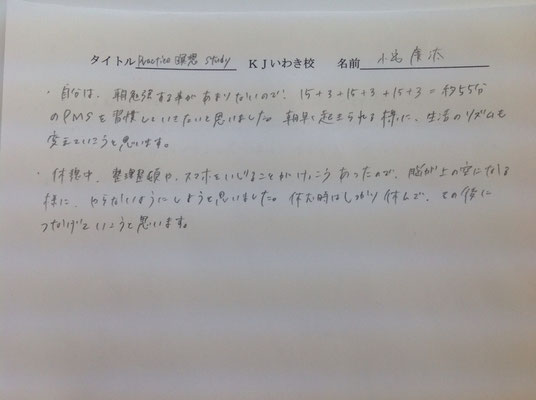 タイトル Practice 瞑想 Study KJいわき校 名前
・自分は、朝勉強する事があまりないので、15+3+15+3+15+3=約55分
のPMSを習慣していきたいと思いました。朝早く起きられる様に、生活のリズムも
変えていこうと思います。
・休憩中、整理整頓や、スマホをいじることがけっこうあったので、脳が上の空になる
様に、やらないようにしようと思いました。休む時はしっかり休んで、その後に
つなげていこうと思います。